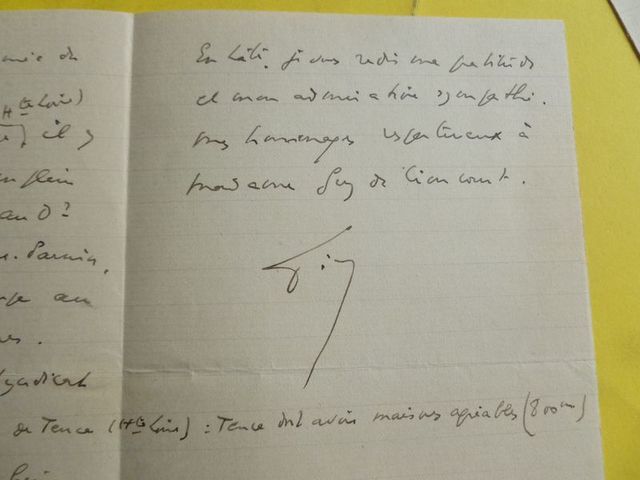 de
Hte Loire)
il y
plein
au
au
Syndicat
En hâte, je vous redis ma gratitude
et mon admirative sympathie.
mes hommages respectueux à
madame Guy de Lioncourt.
de Tence (Hte Loire) : Tence doit avoir maisons agréables (800 m)